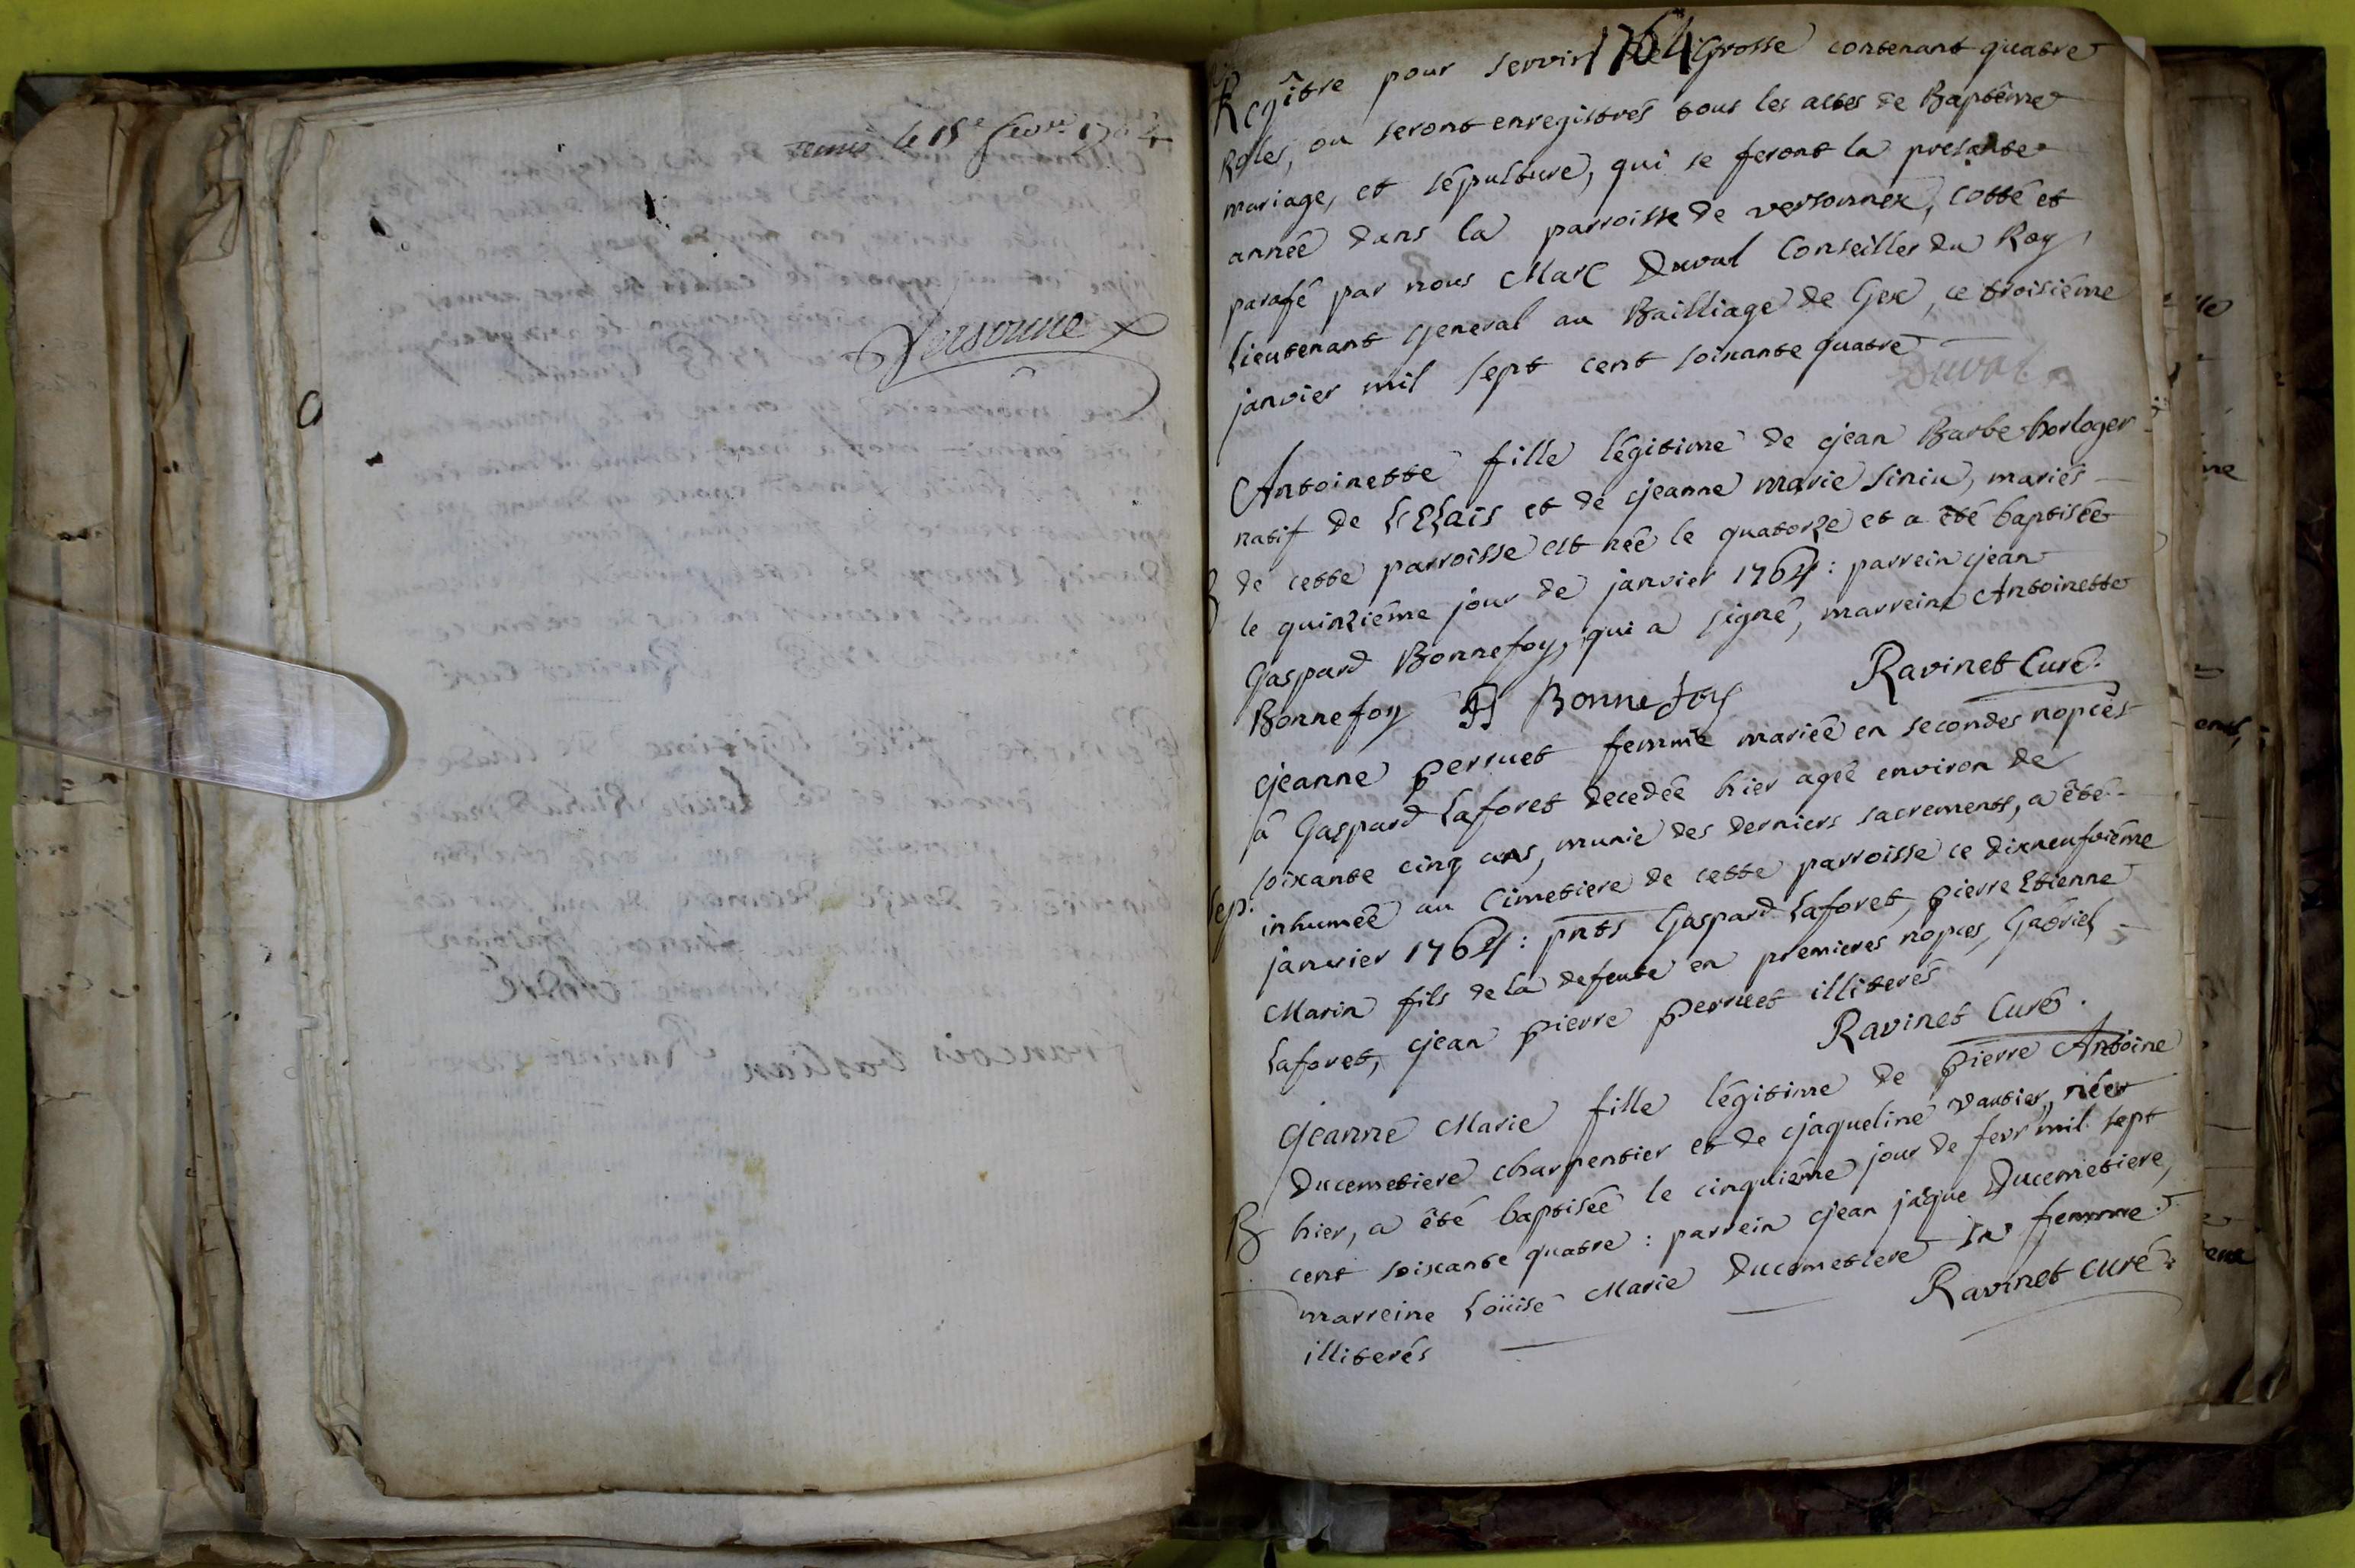 remis le 15e fevr 1764
Versonnex
1764
Regître pour servir de Grosse contenant quatre
Roles, ou seront enregistrés tous les actes de Baptême
mariage, et sépulture, qui se feront la presante
année dans la parroisse de versonnex, cotté et
parafé par nous Marc Duval Conseiller du Roy,
Lieutenant General au Bailliage de Gex, ce troisième
janvier mil sept cent soixante quatre
Duval
Antoinette fille légitime de jean Barbe horloger
natif de et de jeanne marie Siniu, mariés
de cette parroisse est née le quatorze et a êté baptisée
B
le quinzième jour de janvier 1764 : parrein jean
Gaspard Bonnefoy, qui a signé, marreine Antoinette
Bonnefoy Bonnefoy Ravinet Curé.
jeanne perruet femme mariée en secondes nopces
à Gaspard Laforet decedée hier agée environ de
soixante cinq ans, munie des derniers sacrements, a êté
Sep.
inhumée au Cimetiere de cette parroisse ce dixneufvième
janvier 1764 : pnts Gaspard Laforet, pierre Etienne
Marin fils de la defeute en premieres nopces, Gabriel
Laforet, jean pierre perruet illiterés
Ravinet Curé.
jeanne Marie fille légitime de pierre Antoine
Ducemetiere charpentier et de jaqueline vautier, née
B
hier, a êté baptisée le cinquième jour de fevr mil sept
cent soixante quatre : parrein jean jaque Ducemetiere,
marreine Loüise Marie Ducemetiere sa femme
illiterés Ravinet curé.